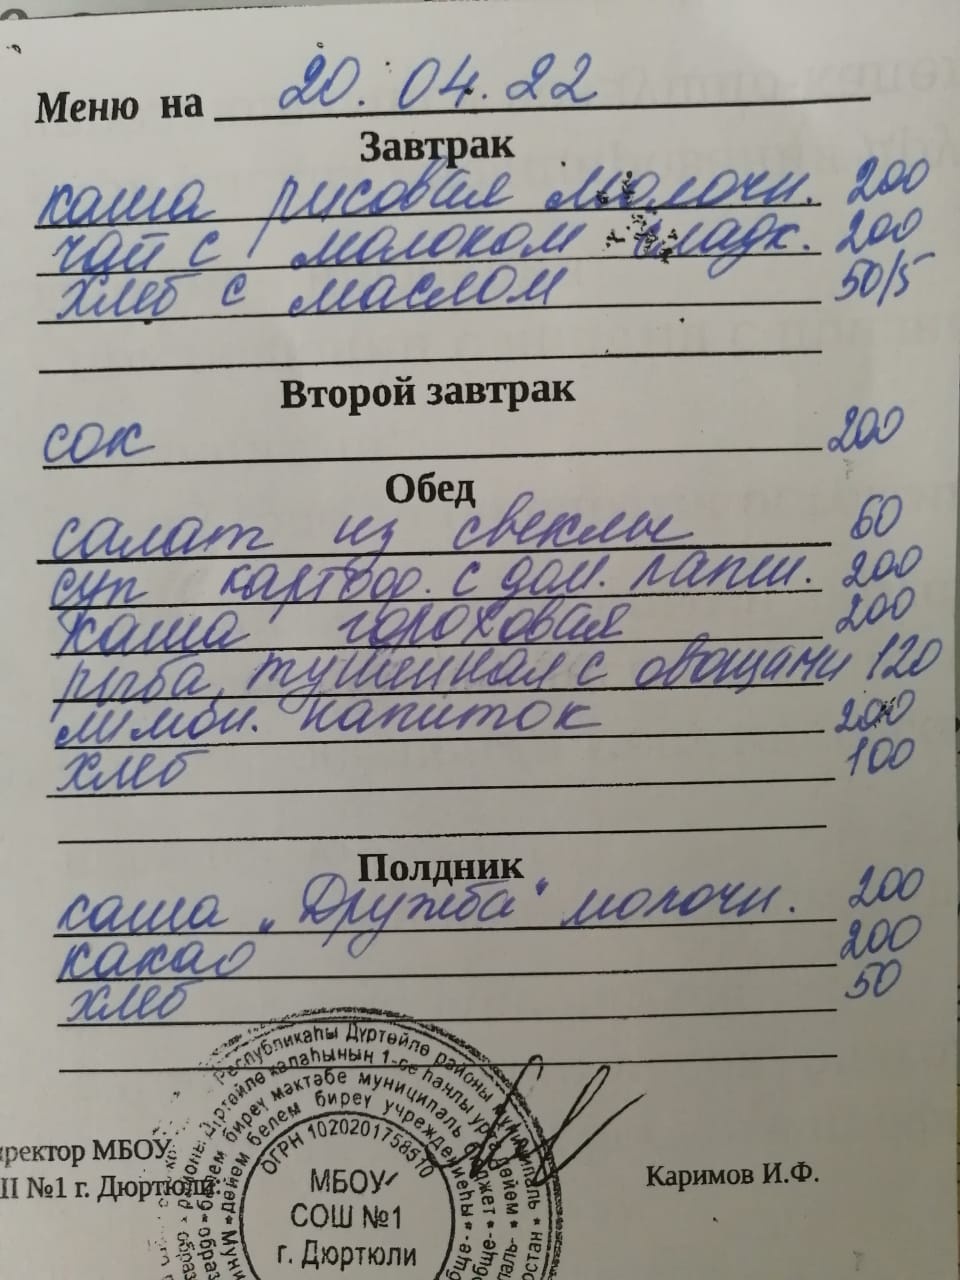 Меню на 20.04.22
Завтрак
каша рисовая молочн. 200
чай с молоком сладк. 200
хлеб с маслом 50/5
Второй завтрак
сок 200
Обед
салат из свеклы 60
суп картоф. с дом. лапш. 200
каша гороховая 200
рыба, тушенная с овощами 120
лимон. напиток 200
хлеб 100
Полдник
каша „Дружба“ молочн. 200
какао 200
хлеб 50
Республикаһы Дүртөйлө районы муниципаль
Дүртөйлө ҡалаһының 1-се һанлы урта дөйөм
белем биреү мәктәбе муниципаль бюджет
дөйөм белем биреү учреждениеһы
ОГРН 1020201758510
МБОУ
СОШ №1
г. Дюртюли
иректор МБОУ
Ш №1 г. Дюртюли:
Каримов И.Ф.